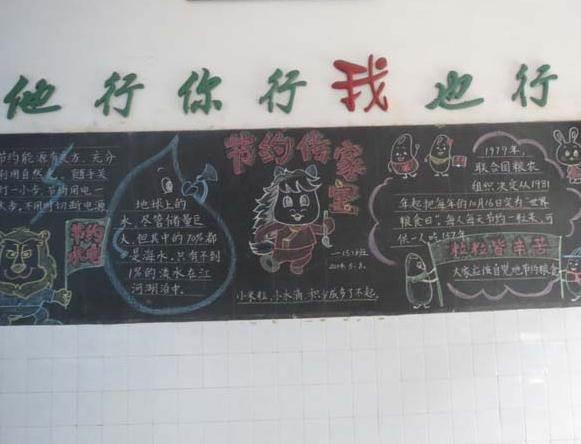 他行你行我也行
节约能源有良方，充分
利用自然光，随手关
灯一小步，节约用电一
大步，不用时切断电源
节约
地球上的
水，尽管储量巨
大，但其中的70%都
是海水，只有不到
1%的淡水在江
河湖泊中。
节约传家宝
2014.5.8.
小米粒，小水滴，积少成多了不起。
1979年，
联合国粮农
组织决定从1981
年起把每年的10月16日定为"世界
粮食日"。每人每天节约一粒米，可
供一人吃
粒粒皆辛苦
大家应该自觉地节约粮食